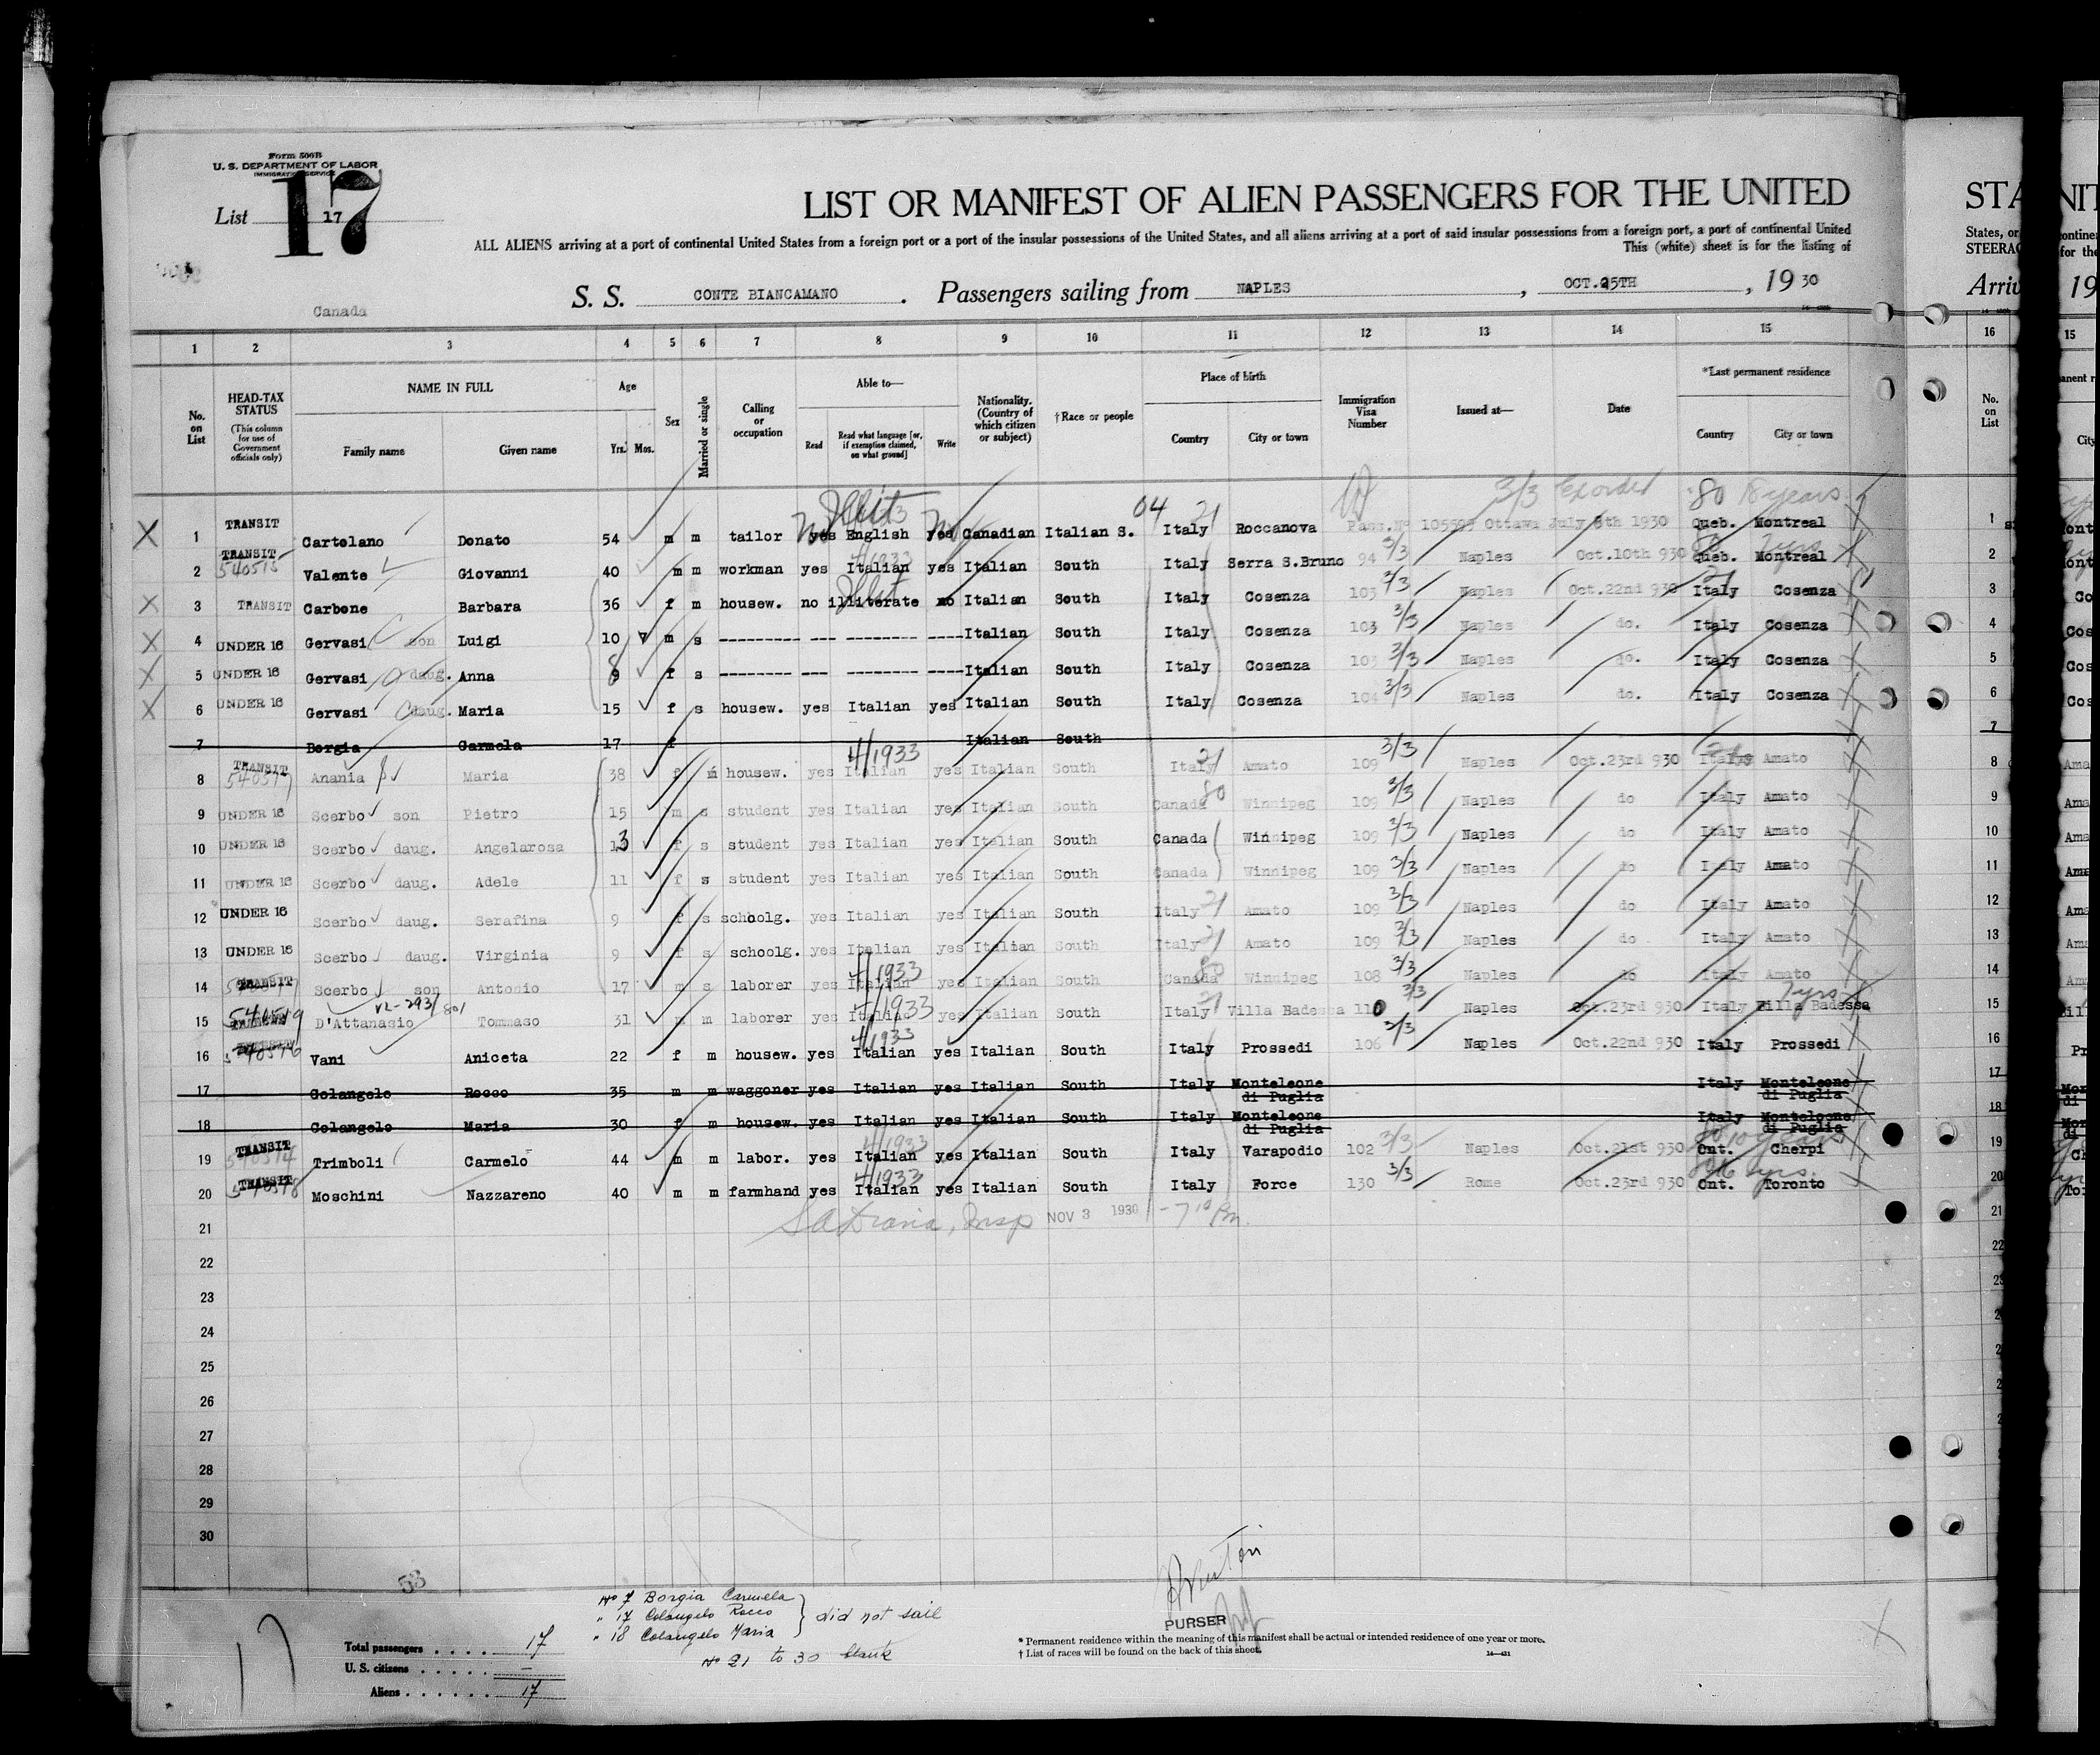 Form 500B
U. S. DEPARTMENT OF LABOR
IMMIGRATION SERVICE
List 17
17
LIST OR MANIFEST OF ALIEN PASSENGERS FOR THE UNITED
ALL ALIENS arriving at a port of continental United States from a foreign port or a port of the insular possessions of the United States, and all aliens arriving at a port of said insular possessions from a foreign port, a port of continental United
This (white) sheet is for the listing of
S. S. CONTE BIANCAMANO . Passengers sailing from NAPLES , OCT.25TH , 19 30
Canada
1 2 3 4 5 6 7 8 9 10 11 12 13 14 15
No. on List
HEAD-TAX STATUS (This column for use of Government officials only)
NAME IN FULL Family name Given name
Age Yrs. Mos.
Sex
Married or single
Calling or occupation
Able to— Read Read what language [or, if exemption claimed, on what ground] Write
Nationality. (Country of which citizen or subject)
†Race or people
Place of birth Country City or town
Immigration Visa Number
Issued at—
Date
*Last permanent residence Country City or town
04 21 3/3 80 18 years
1 TRANSIT Cartolano Donato 54 m m tailor yes English yes Canadian Italian S. Italy Roccanova Pass.Nº 105595 Ottawa July 8th 1930 Queb. Montreal
2 TRANSIT 540515 Valente Giovanni 40 m m workman yes Italian yes Italian South Italy Serra S.Bruno 94 3/3 Naples Oct.10th 930 Queb. Montreal
3 TRANSIT Carbone Barbara 36 f m housew. no illiterate no Italian South Italy Cosenza 103 3/3 Naples Oct.22nd 930 Italy Cosenza
4 UNDER 16 Gervasi son Luigi 10 m s --------- --- -------- ---- Italian South Italy Cosenza 103 3/3 Naples do. Italy Cosenza
5 UNDER 16 Gervasi daug. Anna 9 8 f s --------- --- -------- ---- Italian South Italy Cosenza 103 3/3 Naples do. Italy Cosenza
6 UNDER 16 Gervasi daug. Maria 15 f s housew. yes Italian yes Italian South Italy Cosenza 104 3/3 Naples do. Italy Cosenza
7 Borgia Carmela 17 f Italian South
4/1933
8 TRANSIT Anania Maria 38 f m housew. yes Italian yes Italian South Italy 21 Amato 109 3/3 Naples Oct.23rd 930 Italy Amato
9 UNDER 16 Scerbo son Pietro 15 m s student yes Italian yes Italian South Canada 80 Winnipeg 109 3/3 Naples do Italy Amato
10 UNDER 16 Scerbo daug. Angelarosa 13 f s student yes Italian yes Italian South Canada Winnipeg 109 3/3 Naples do Italy Amato
11 UNDER 16 Scerbo daug. Adele 11 f s student yes Italian yes Italian South Canada Winnipeg 109 3/3 Naples do Italy Amato
12 UNDER 16 Scerbo daug. Serafina 9 f s schoolg. yes Italian yes Italian South Italy 21 Amato 109 3/3 Naples do Italy Amato
13 UNDER 16 Scerbo daug. Virginia 9 f s schoolg. yes Italian yes Italian South Italy 21 Amato 109 3/3 Naples do Italy Amato
4/1933
14 TRANSIT Scerbo son Antonio 17 m s laborer yes Italian yes Italian South Canada 80 Winnipeg 108 3/3 Naples do Italy Amato
V2-293/801 4/1933 7yrs
15 540519 D'Attanasio Tommaso 31 m m laborer yes Italian yes Italian South Italy 21 Villa Badessa 110 3/3 Naples Oct.23rd 930 Italy Villa Badessa
4/1933
16 540516 Vani Aniceta 22 f m housew. yes Italian yes Italian South Italy Prossedi 106 3/3 Naples Oct.22nd 930 Italy Prossedi
17 Colangelo Rocco 35 m m waggoner yes Italian yes Italian South Italy Monteleone di Puglia Italy Monteleone di Puglia
18 Colangelo Maria 30 f m housew. yes Italian yes Italian South Italy Monteleone di Puglia Italy Monteleone di Puglia
4/1933 10 years
19 TRANSIT Trimboli Carmelo 44 m m labor. yes Italian yes Italian South Italy Varapodio 102 3/3 Naples Oct.21st 930 Ont. Cherpi
4/1933
20 TRANSIT Moschini Nazzareno 40 m m farmhand yes Italian yes Italian South Italy Force 130 3/3 Rome Oct.23rd 930 Ont. Toronto
21 Insp NOV 3 1930 - 7 10 Pm.
22
23
24
25
26
27
28
29
30
53
Nº 7 Borgia Carmela
" 17 Colangelo Rocco
" 18 Colangelo Maria
did not sail
Nº 21 to 30 blank
17
Total passengers . . . . 17
U. S. citizens . . . . . —
Aliens . . . . . . 17
PURSER
* Permanent residence within the meaning of this manifest shall be actual or intended residence of one year or more.
† List of races will be found on the back of this sheet.
14—421